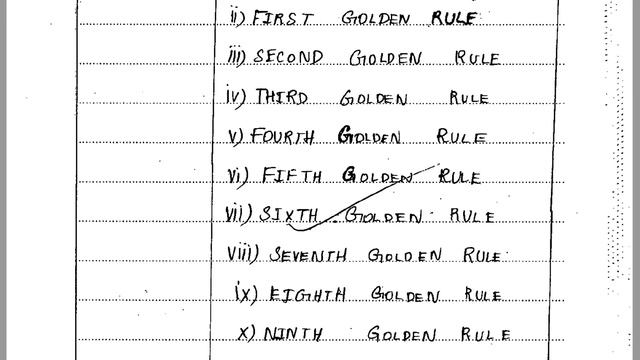 ii) FIRST GOLDEN RULE
iii) SECOND GOLDEN RULE
iv) THIRD GOLDEN RULE
v) FOURTH GOLDEN RULE
vi) FIFTH GOLDEN RULE
vii) SIXTH GOLDEN RULE
viii) SEVENTH GOLDEN RULE
ix) EIGHTH GOLDEN RULE
x) NINTH GOLDEN RULE